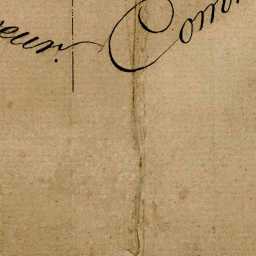 eur. Com